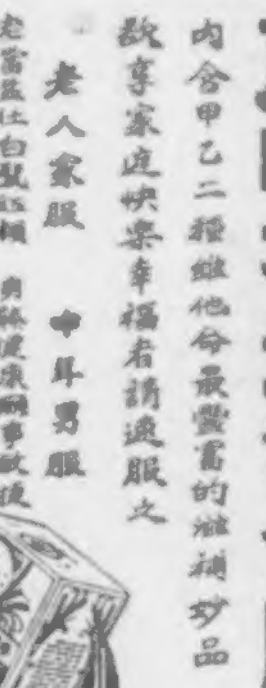 內含甲乙二種維他命最豐富的滋補妙品
欲享家庭快樂幸福者請速服之
老人家服　中年男服
老當益壯白髮紅顏　爽神健康